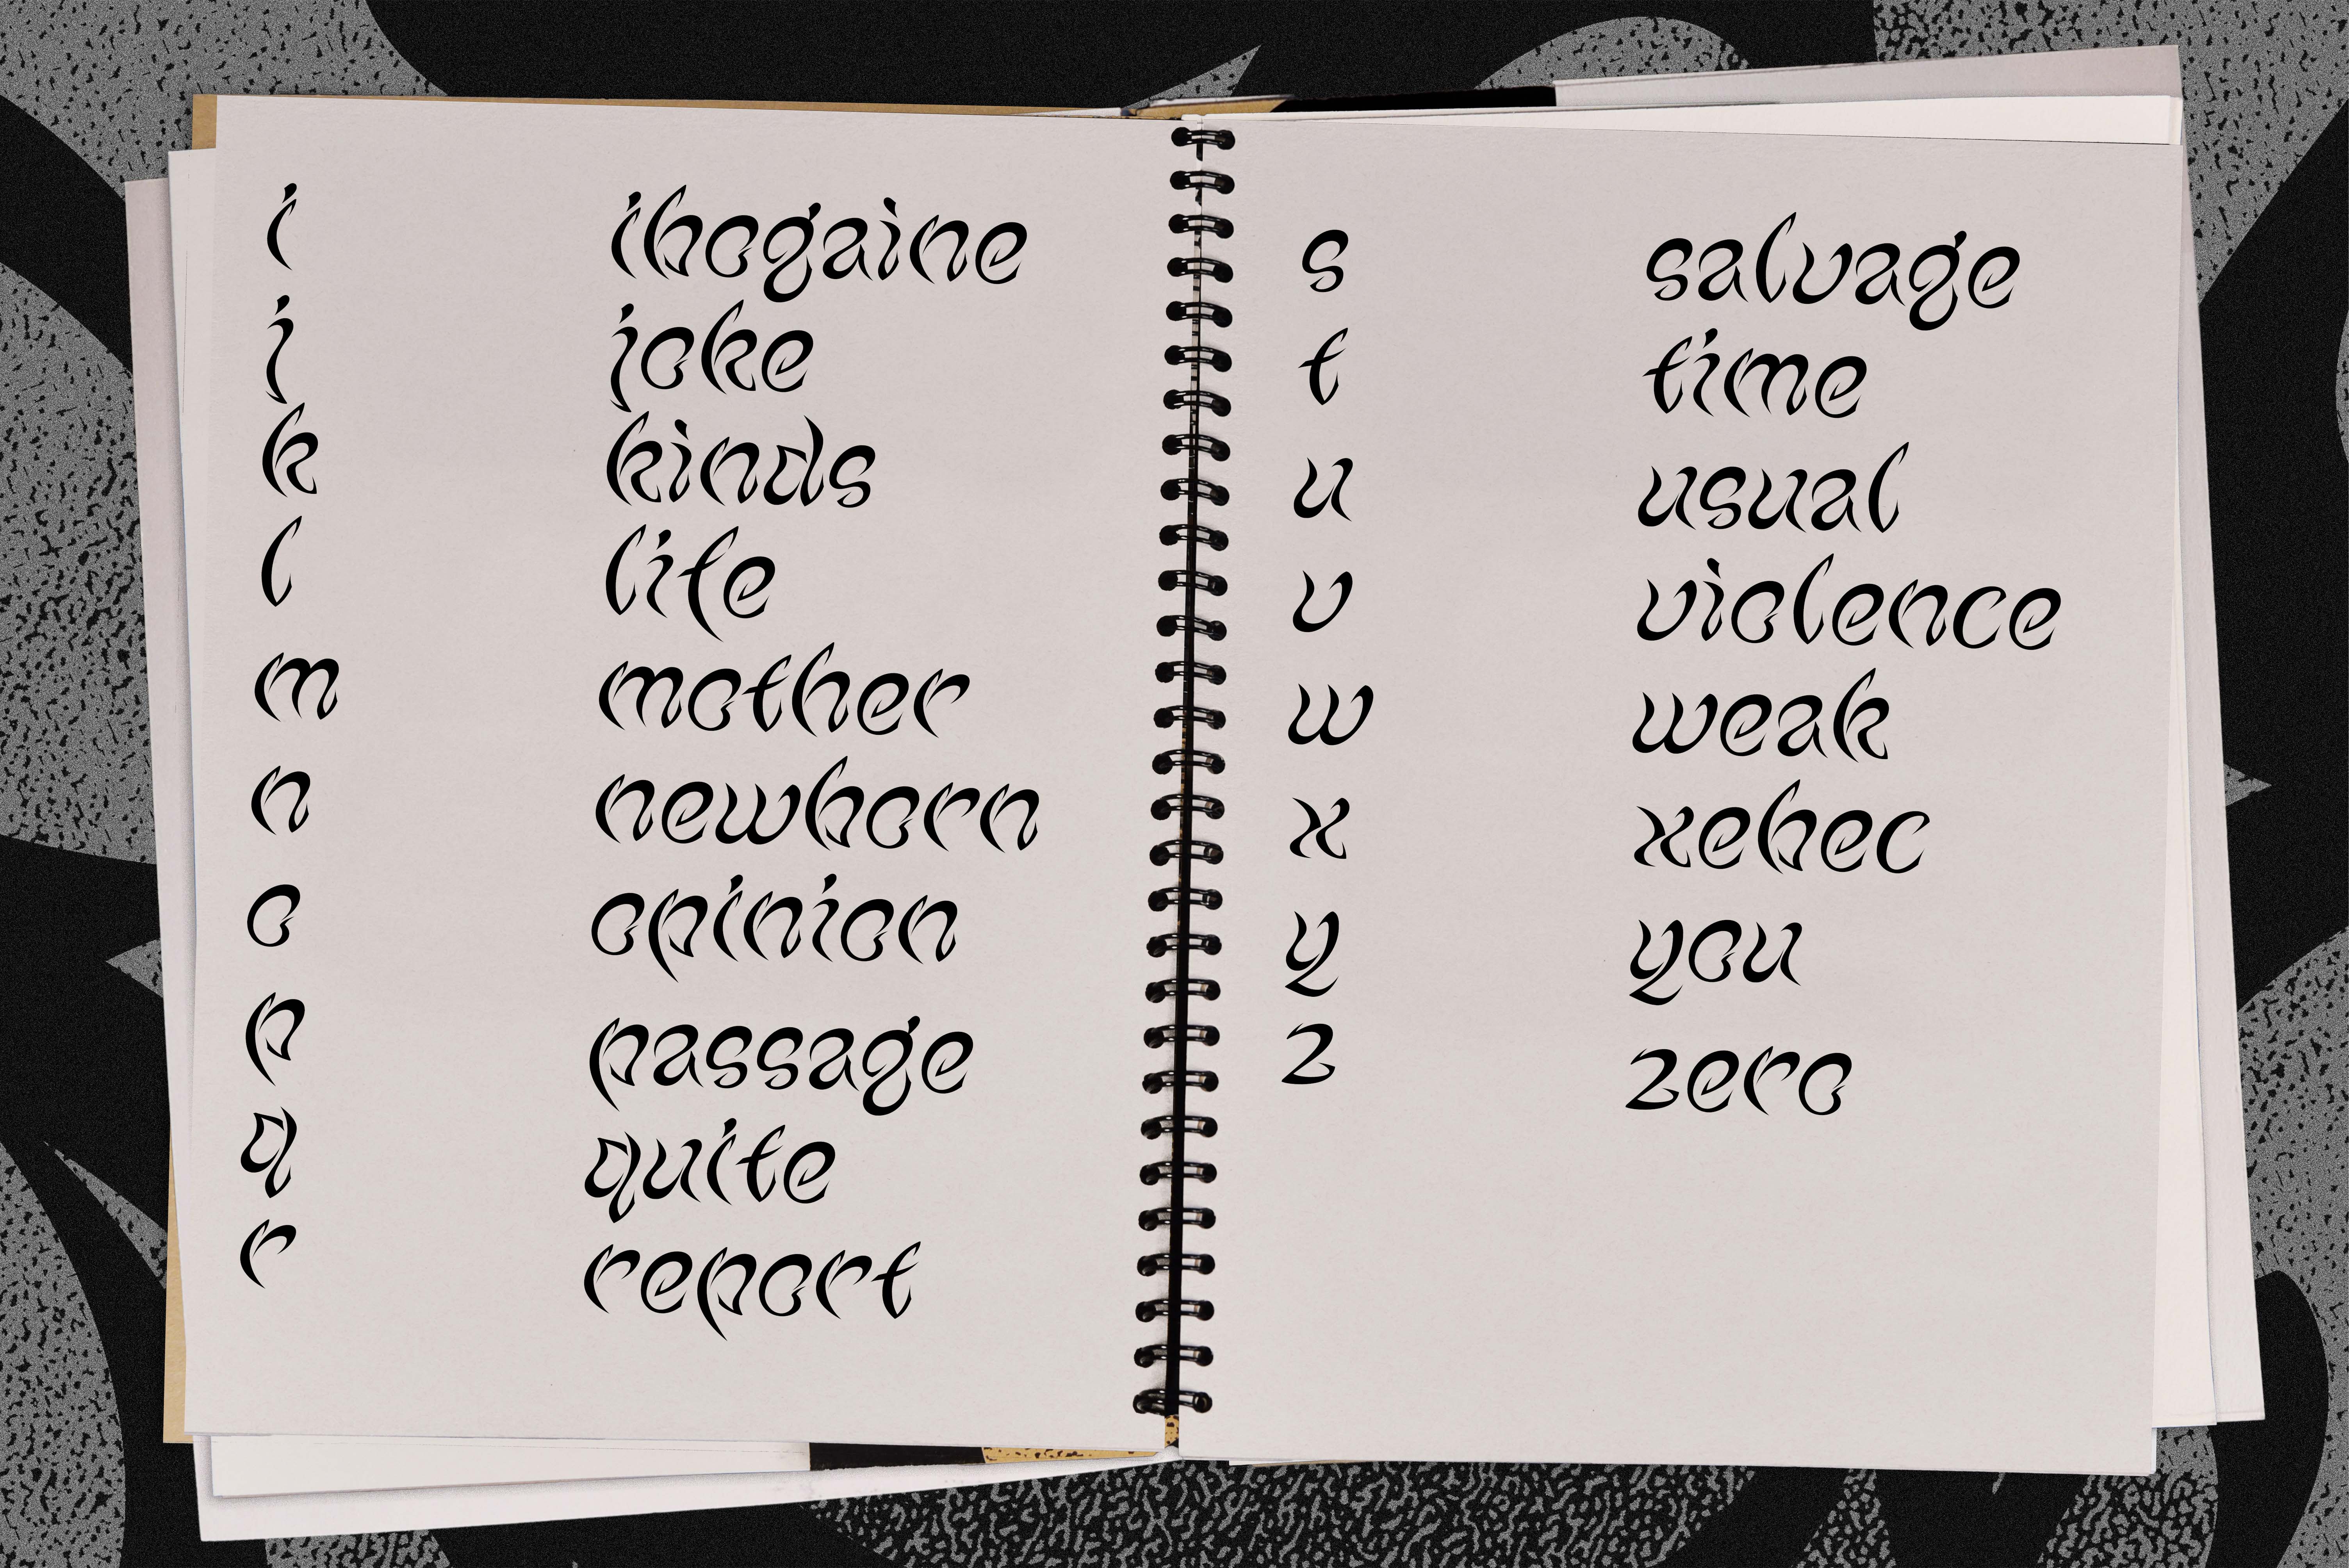 i ibogaine
j joke
k kinds
l life
m mother
n newborn
o opinion
p passage
q quite
r report
s salvage
t time
u usual
v violence
w weak
x xebec
y you
z zero